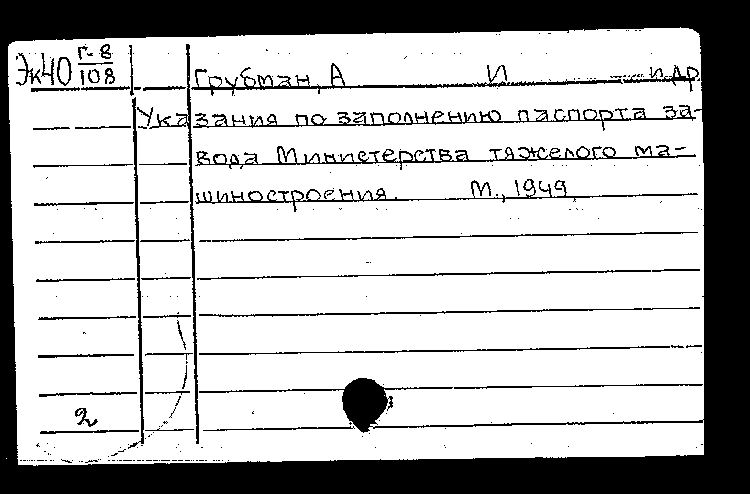 Эк40 Г-8/108
Грубман, А И и др
Указания по заполнению паспорта за-
вода Министерства тяжелого ма-
шиностроения. М., 1949
2